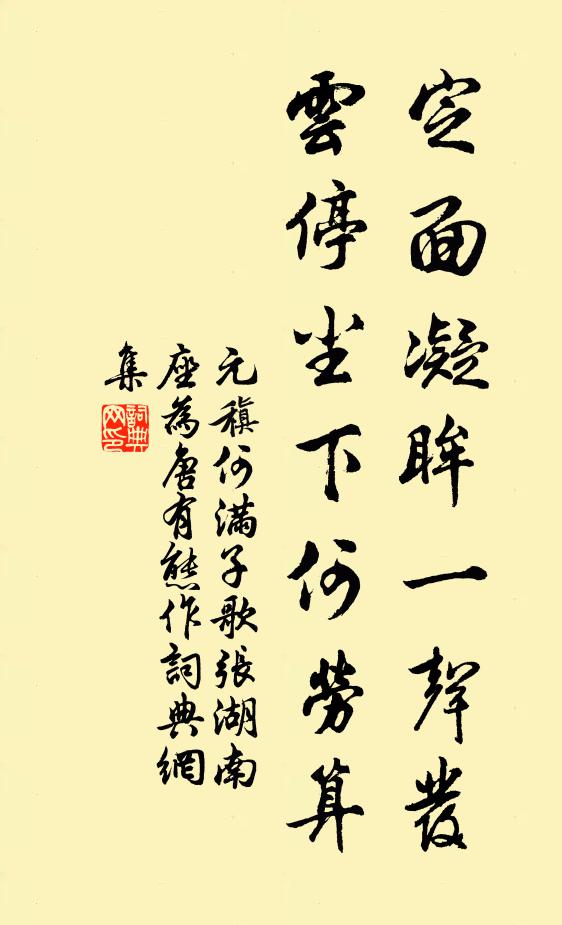 定面凝眸一聲發
雲停尘下何勞算
元稹何滿子歌張湖南
座為唐有熊作詞典網
集
詞典
网印